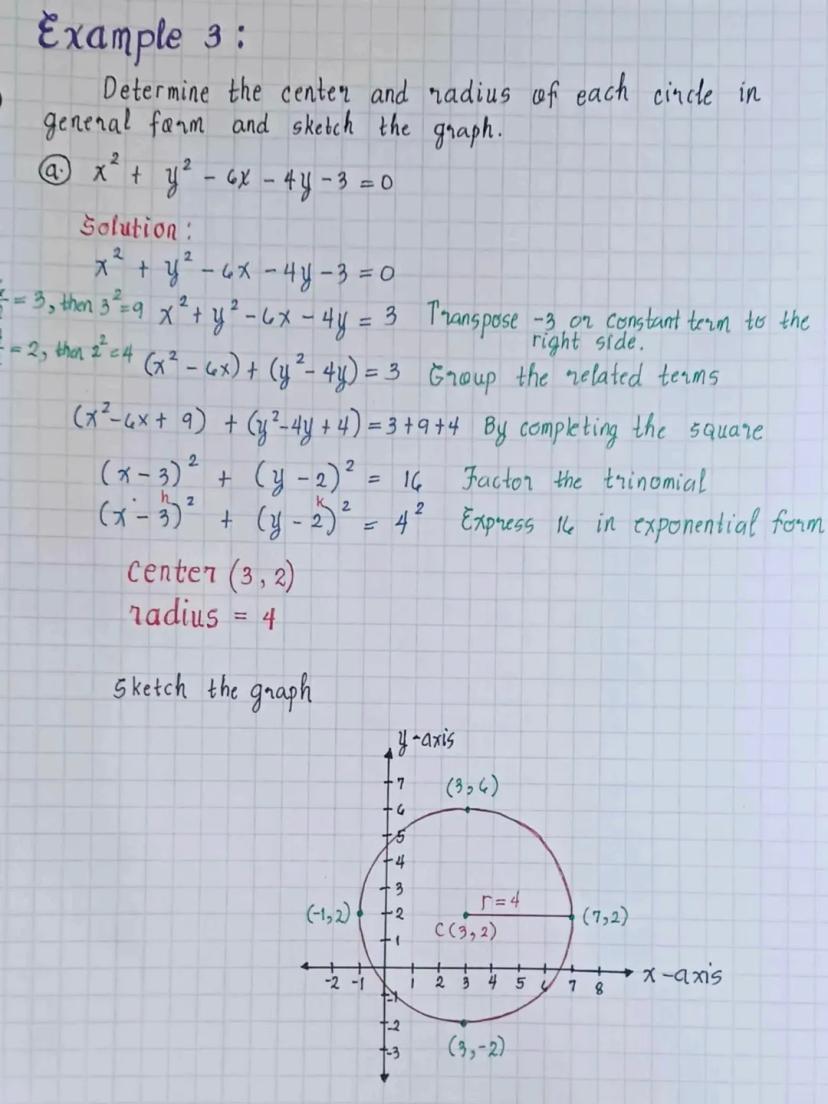 Example 3:
Determine the center and radius of each circle in
general form and sketch the graph.
a. x² + y² - 6x - 4y - 3 = 0
Solution:
x² + y² - 6x - 4y - 3 = 0
= 3, then 3² = 9 x² + y² - 6x - 4y = 3 Transpose -3 or constant term to the
right side.
= 2, then 2² = 4 (x² - 6x) + (y² - 4y) = 3 Group the related terms
(x² - 6x + 9) + (y² - 4y + 4) = 3 + 9 + 4 By completing the square
(x - 3)² + (y - 2)² = 16 Factor the trinomial
h k
(x - 3)² + (y - 2)² = 4² Express 16 in exponential form
center (3, 2)
radius = 4
Sketch the graph
y-axis
7
(3, 6)
6
5
4
3
r = 4
(-1, 2) 2 (7, 2)
C(3, 2)
1
x-axis
-2 -1 1 2 3 4 5 6 7 8
-1
-2
(3, -2)
-3